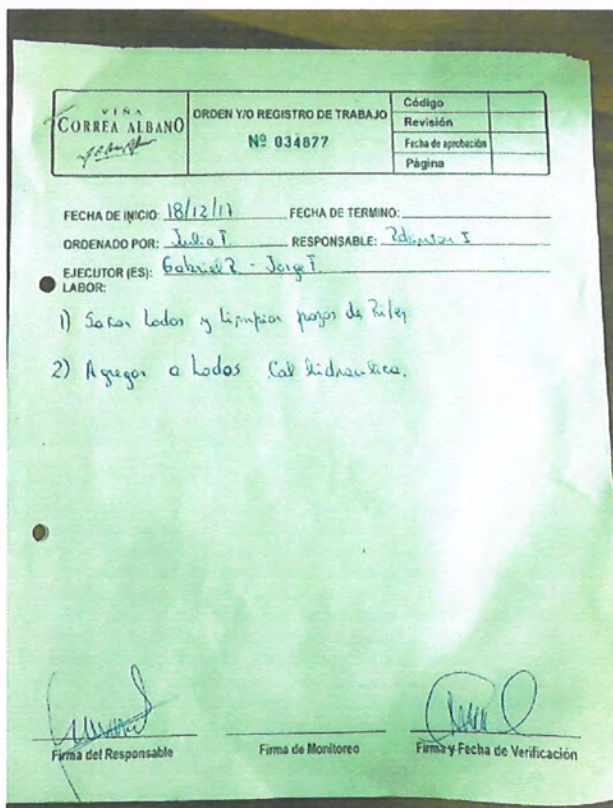 VIÑA
CORREA ALBANO
ORDEN Y/O REGISTRO DE TRABAJO
Nº 034877
Código
Revisión
Fecha de aprobación
Página
FECHA DE INICIO: 18/12/17 FECHA DE TERMINO:
ORDENADO POR: Julio T RESPONSABLE:
EJECUTOR (ES): Gabriel R - Jorge T.
LABOR:
1) Sacar Lodos y limpiar pozos de Riles
2) Agregar a Lodos Cal hidraulica.
Firma del Responsable
Firma de Monitoreo
Firma y Fecha de Verificación